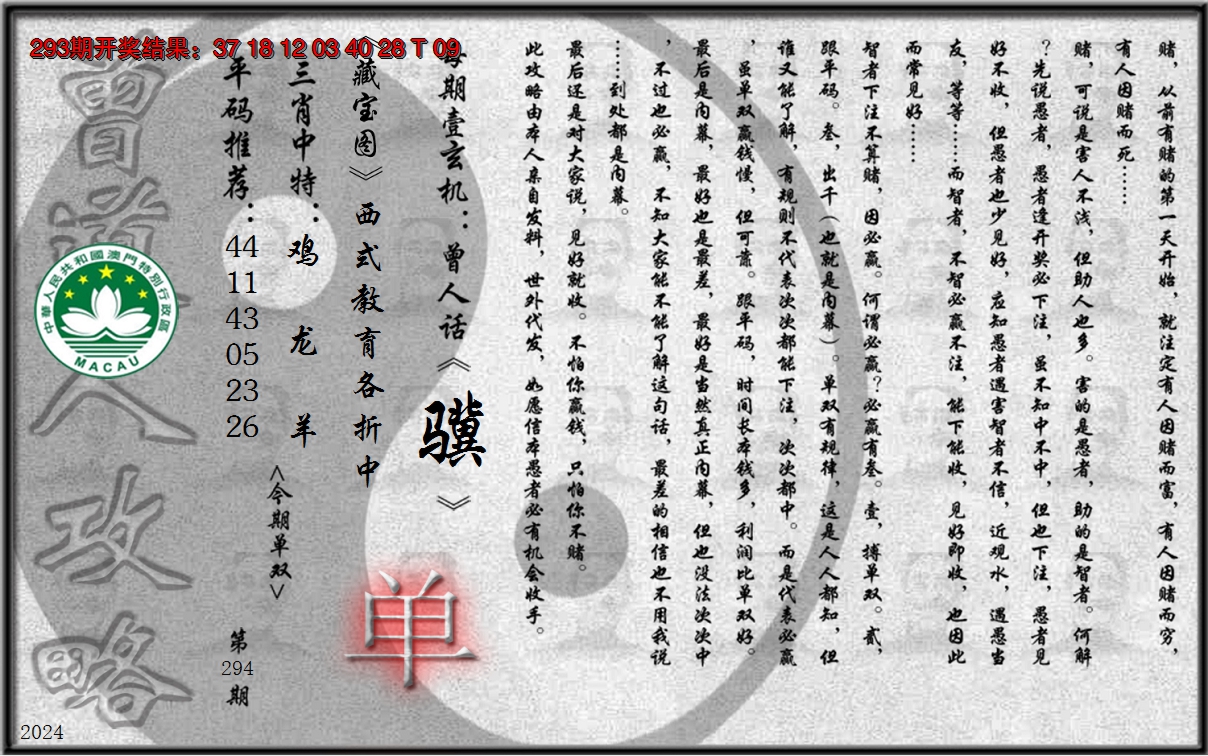 293期开奖结果：37 18 12 03 40 28 T 09
赌，从前有赌的第一天开始，就注定有人因赌而富，有人因赌而穷，
有人因赌而死……
赌，可说是害人不浅，但助人也多。害的是愚者，助的是智者。何解
？先说愚者，愚者逢开奖必下注，虽不知中不中，但也下注，愚者见
好不收，但愚者也少见好，应知愚者遇害智者不信，近观水，遇愚当
友，等等……而智者，不智必赢不注，能下能收，见好即收，也因此
而常见好……
智者下注不算赌，因必赢。何谓必赢？必赢有叁。壹，搏单双。贰，
跟平码。叁，出千（也就是内幕）。单双有规律，这是人人都知，但
谁又能了解，有规则不代表次次都能下注，次次都中。而是代表必赢
，虽单双赢钱慢，但可靠。跟平码，时间长本钱多，利润比单双好。
最后是内幕，最好也是最差，最好是当然真正内幕，但也没法次次中
，不过也必赢，不知大家能不能了解这句话，最差的相信也不用我说
……到处都是内幕。
最后还是对大家说，见好就收。不怕你赢钱，只怕你不赌。
此攻略由本人亲自发料，世外代发，如愿信本愚者必有机会收手。
每期壹玄机：曾人话《骥》
《藏宝图》西式教育各折中
单
三肖中特：鸡 龙 羊
<今期单双>
平码推荐：
44
11
43
05
23
26
第
294
期
曾道人攻略
中華人民共和國澳門特別行政區
MACAU
2024